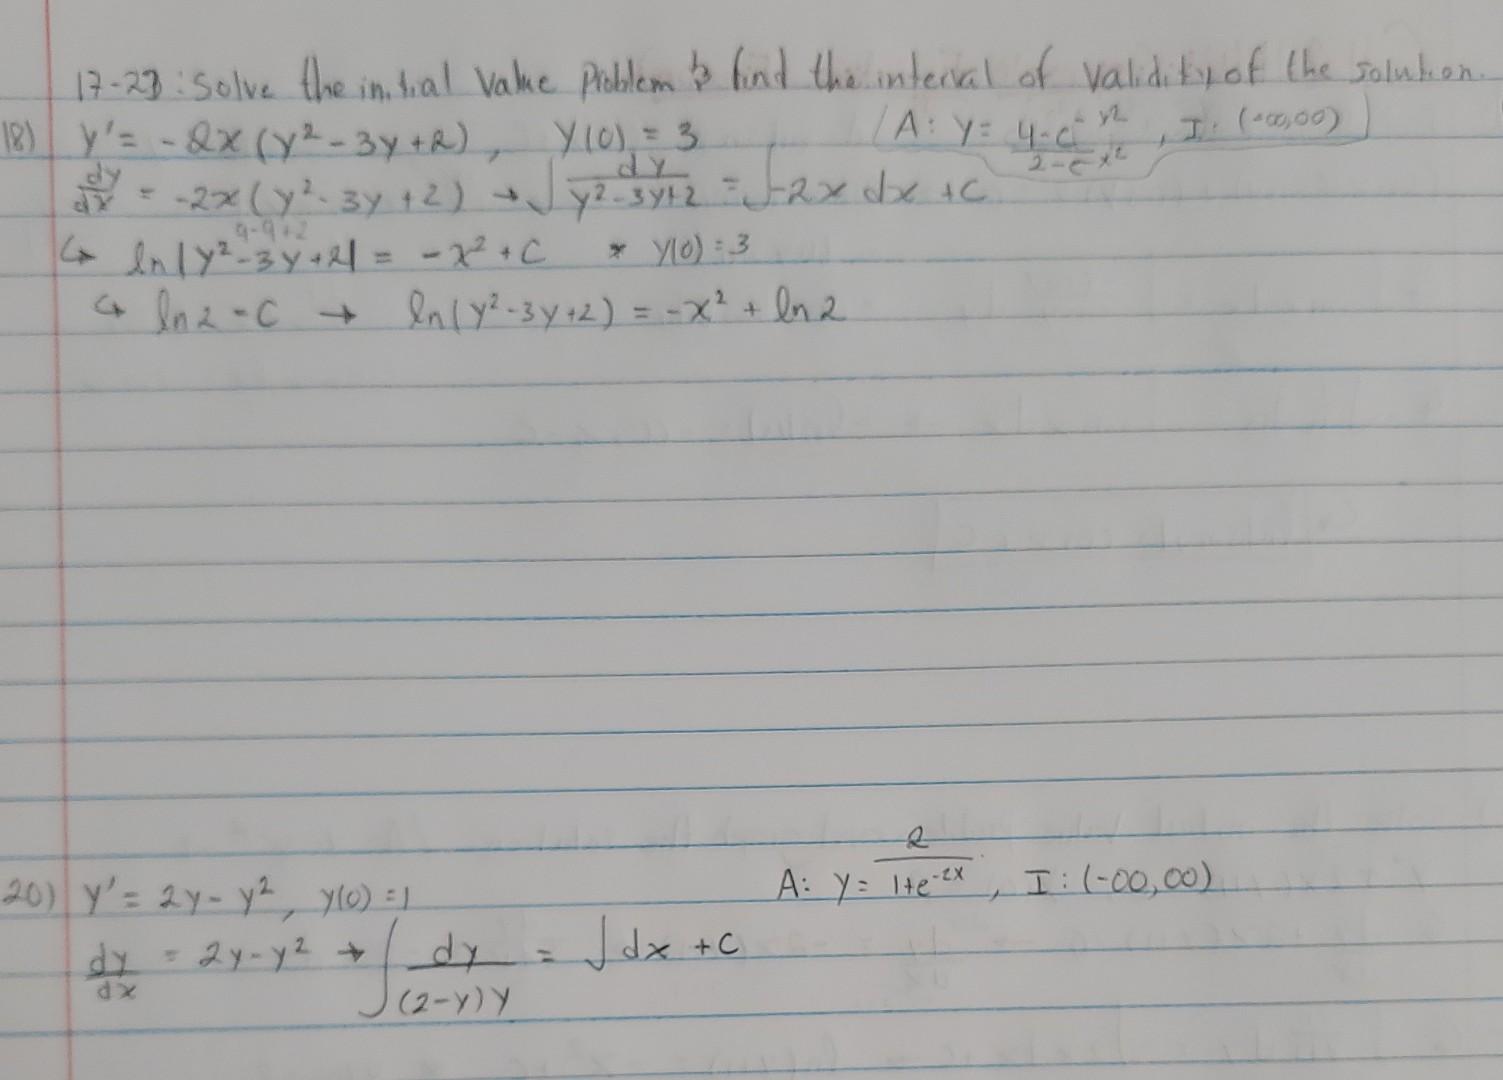 17-23: Solve the initial value problem & find the interval of validity of the solution.
18) y' = -2x(y² - 3y + 2), y(0) = 3 (A: y = 4-e^-x² / 2-e^-x², I: (-∞,∞))
dy/dx = -2x(y² - 3y + 2) → ∫ dy / y²-3y+2 = ∫-2x dx + C
9-9+2
↳ ln|y²-3y+2| = -x² + C * y(0) = 3
↳ ln2 = C → ln(y²-3y+2) = -x² + ln2
20) y' = 2y - y², y(0) = 1 A: y = 2 / 1+e^-2x, I: (-∞,∞)
dy/dx = 2y - y² → ∫ dy / (2-y)y = ∫dx + C